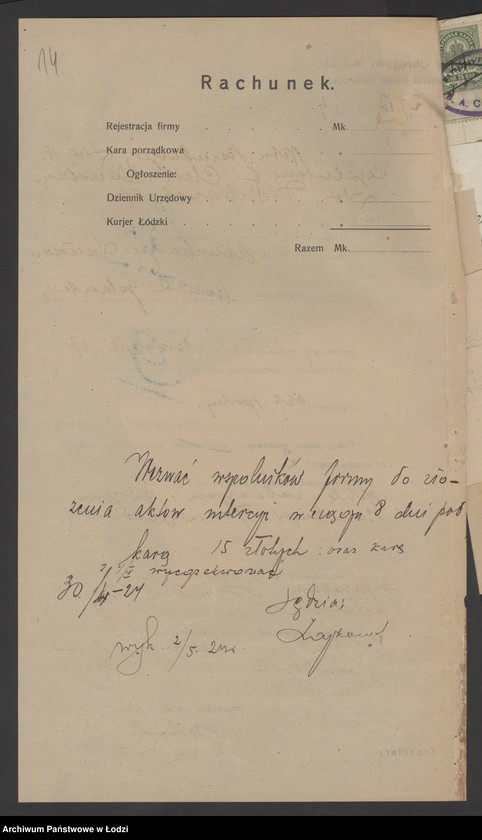 14
Rachunek.
Rejestracja firmy . . . . Mk.
Kara porządkowa . . . . „
Ogłoszenie:
Dziennik Urzędowy . . . . „
Kurjer Łódzki . . . . . „
Razem Mk.
Wezwać wspólników firmy do zło-
żenia aktów intercyz w ciągu 8 dni pod
karą 15 złotych oraz karę
wyegzekwować
30/4-24
Sędzia:
wyk. 2/5. 24
Archiwum Państwowe w Łodzi